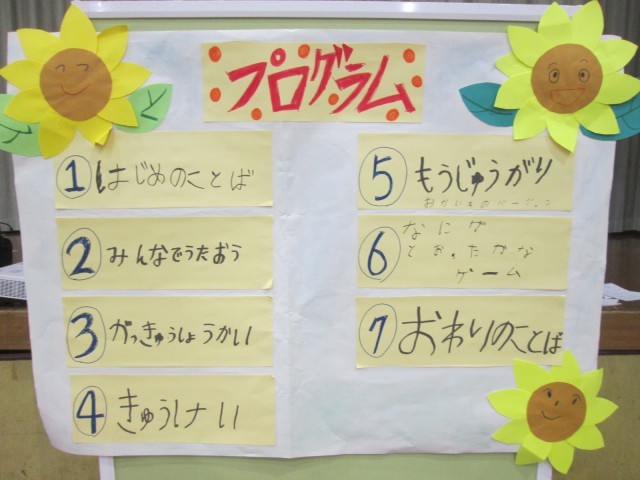 プログラム
① はじめのことば
② みんなでうたおう
③ がっきゅうしょうかい
④ きゅうけい
⑤ もうじゅうがり
⑥ なにが
とおったかな
ゲーム
⑦ おわりのことば